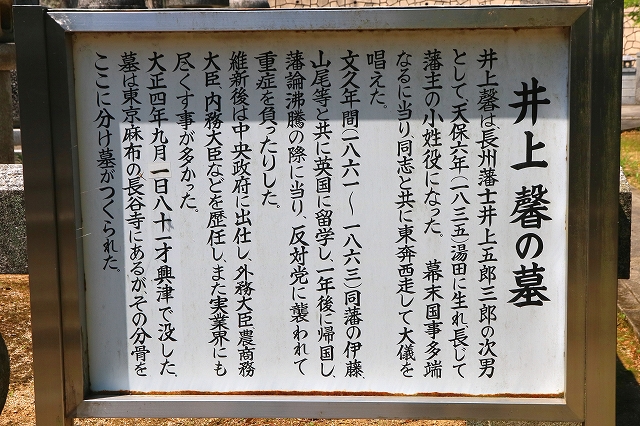 井上馨の墓
井上馨は、長州藩士井上五郎三郎の次男
として、天保六年(一八三五)湯田に生れ、長じて
藩主の小姓役になった。　幕末国事多端
なるに当り、同志と共に東奔西走して大儀を
唱えた。
文久年間(一八六一〜一八六三)同藩の伊藤、
山尾等と共に英国に留学し、一年後に帰国し、
藩論沸騰の際に当り、反対党に襲われて
重症を負ったりした。
維新後は中央政府に出仕し、外務大臣、農商務
大臣、内務大臣などを歴任し、また実業界にも
尽くす事が多かった。
大正四年九月一日八十一才興津で没した、
墓は東京麻布の長谷寺にあるが、その分骨を
ここに分け墓がつくられた。